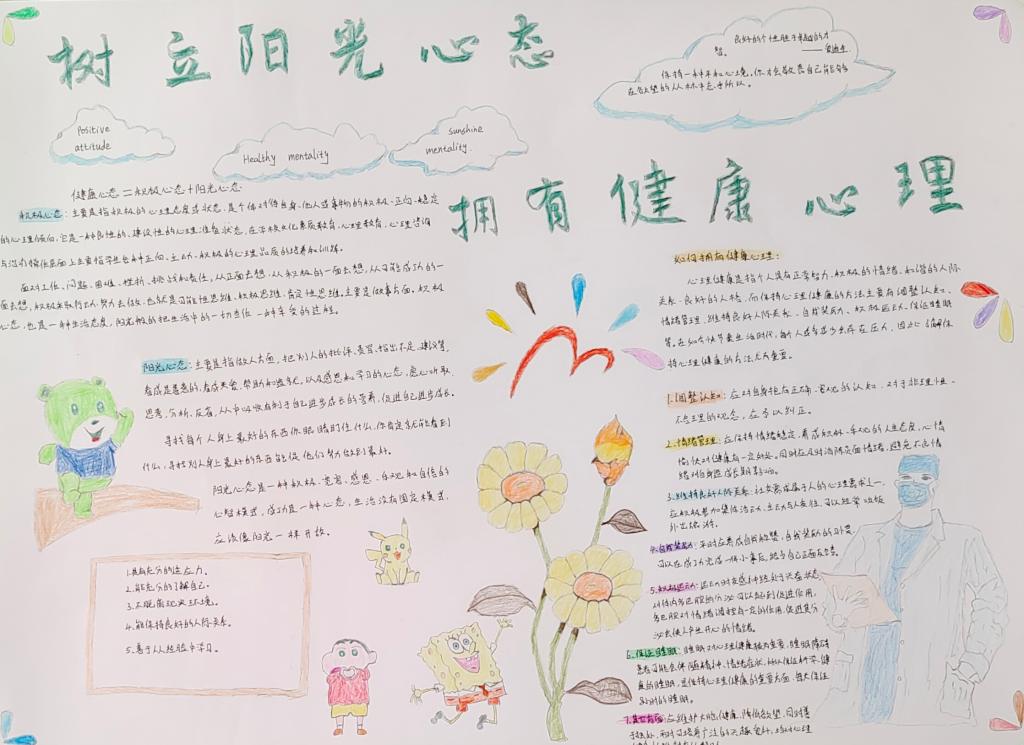 树立阳光心态
良好的个性胜于卓越的才
智。
——爱迪生
保持一种平和心境。你才会
Positive
attitude
Healthy mentality
sunshine
mentality.
拥有健康心理
健康心态=积极心态+阳光心态
积极心态：主要是指积极的心理态度或状态，是个体对待自身、他人或事物的积极、正向、稳定
的心理倾向，它是一种良性的、建设性的心理准备状态，
面对工作、问题、困难、挫折、挑战和责任，从正面去想，从积极的一面去想，从可能成功的一
面去想，积极采取行动，努力去做，也就是可能性思维、积极思维、肯定性思维。主要是做事方面。积极
心态，也是一种生活态度，阳光般的把生活中的一切当做一种享受的过程。
阳光心态：主要是指做人方面，把别人的批评、责骂、指出不足、建议等，
看成是善意的，看成关爱、帮助和
思考，分析，反省，从中吸收有利于自己进步成长的营养，促进自己进步成长。
寻找每个人身上最好的东西你眼睛盯住什么，你肯定就能看到
什么，寻找别人身上最好的东西能促他们努力做到最好。
阳光心态是一种积极、宽容、感恩、乐观和自信的
心智模式。成功是一种心态，生活没有固定模式，
应该像阳光一样开放。
1.具有充分的适应力。
2.能充分的了解自己。
3.不脱离现实环境。
4.能保持良好的人际关系。
5.善于从经验中学习。
如何拥有健康心理：
心理健康是指个人具有正常智力、积极的情绪、和谐的人际
关系、良好的人格，而保持心理健康的方法主要有调整认知、
情绪管理、维持良好人际关系、自我奖励、积极运动、保证睡眠
等。在如今快节奏生活时代，每个人或多或少会存在压力，因此了解保
持心理健康的方法尤为重要。
1.调整认知：应对自身抱有正确、客观的认知，对于非理性、
不合理的观念，应予以纠正。
2.情绪管理：应保持情绪稳定，养成积极、乐观的人生态度，心情
愉快对健康有一定好处。同时应及时消除负面情绪，避免不良情
绪对自身造成长期影响。
3.维持良好人际关系：社交需求属于人的心理需求之一，
应积极参加集体活动，主动与人交往，可以经常
外出旅游。
4.自我奖励：平时应养成自我欣赏，自我奖励的习惯，
可以在成功完成一件小事后，给予自己正面反馈。
5.积极运动：运动时交感神经处于兴奋状态，
对体内多巴胺的分泌可以起到促进作用，
多巴胺对情绪调控有一定的作用，促进其分
泌会使人产生开心的情绪。
6.保证睡眠：睡眠对心理健康极为重要，睡眠障碍
患者可能会伴随精神、情绪症状，所以保证科学、健
康的睡眠，是保持心理健康的重要方面，每天保证
8小时的睡眠。
7.其它方面：应维护大脑健康，降低欲望，同时善